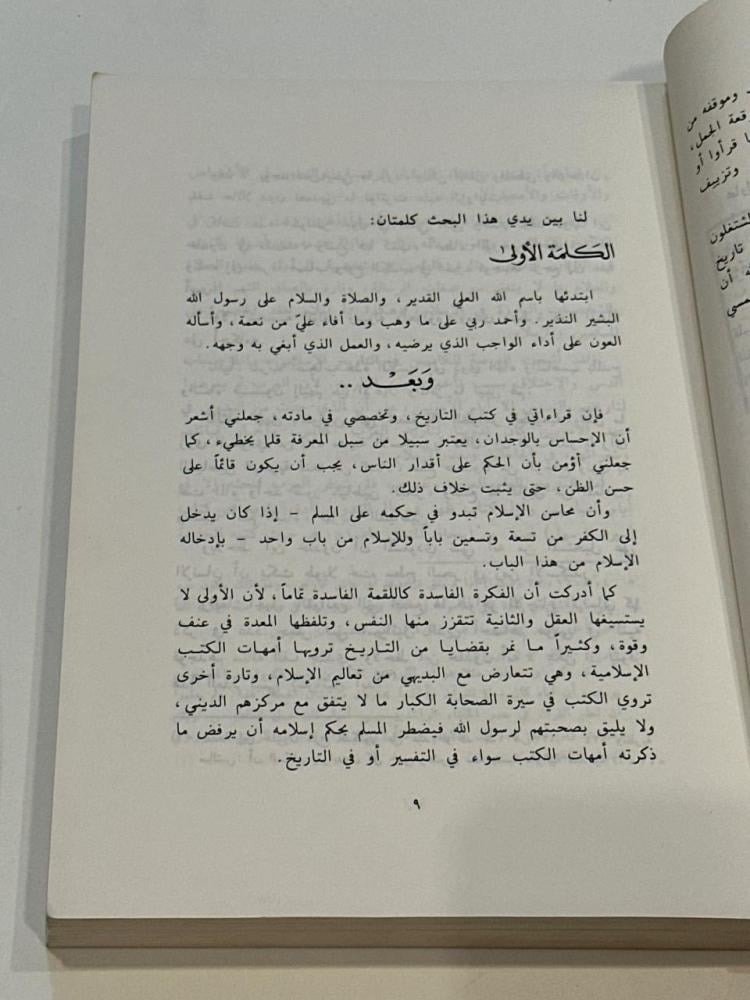 لنا بين يدي هذا البحث كلمتان:
الكلمة الأولى
ابتدئها باسم الله العلي القدير، والصلاة والسلام على رسول الله
البشير النذير. وأحمد ربي على ما وهب وما أفاء عليّ من نعمة، وأسأله
العون على أداء الواجب الذي يرضيه، والعمل الذي أبغي به وجهه.
وبعد ..
فإن قراءاتي في كتب التاريخ، وتخصصي في مادته، جعلني أشعر
أن الإحساس بالوجدان، يعتبر سبيلا من سبل المعرفة قلما يخطيء، كما
جعلني أؤمن بأن الحكم على أقدار الناس، يجب أن يكون قائماً على
حسن الظن، حتى يثبت خلاف ذلك.
وأن محاسن الإسلام تبدو في حكمه على المسلم - إذا كان يدخل
إلى الكفر من تسعة وتسعين باباً وللإسلام من باب واحد - بإدخاله
الإسلام من هذا الباب.
كما أدركت أن الفكرة الفاسدة كاللقمة الفاسدة تماماً، لأن الأولى لا
يستسيغها العقل والثانية تتقزز منها النفس، وتلفظها المعدة في عنف
وقوة، وكثيراً ما نمر بقضايا من التاريخ ترويها أمهات الكتب
الإسلامية، وهي تتعارض مع البديهي من تعاليم الإسلام، وتارة أخرى
تروي الكتب في سيرة الصحابة الكبار ما لا يتفق مع مركزهم الديني،
ولا يليق بصحبتهم لرسول الله فيضطر المسلم بحكم إسلامه أن يرفض ما
ذكرته أمهات الكتب سواء في التفسير أو في التاريخ.
٩
وموقفه من
الجمل،
قرأوا أو
وتزييف
تاريخ
أن